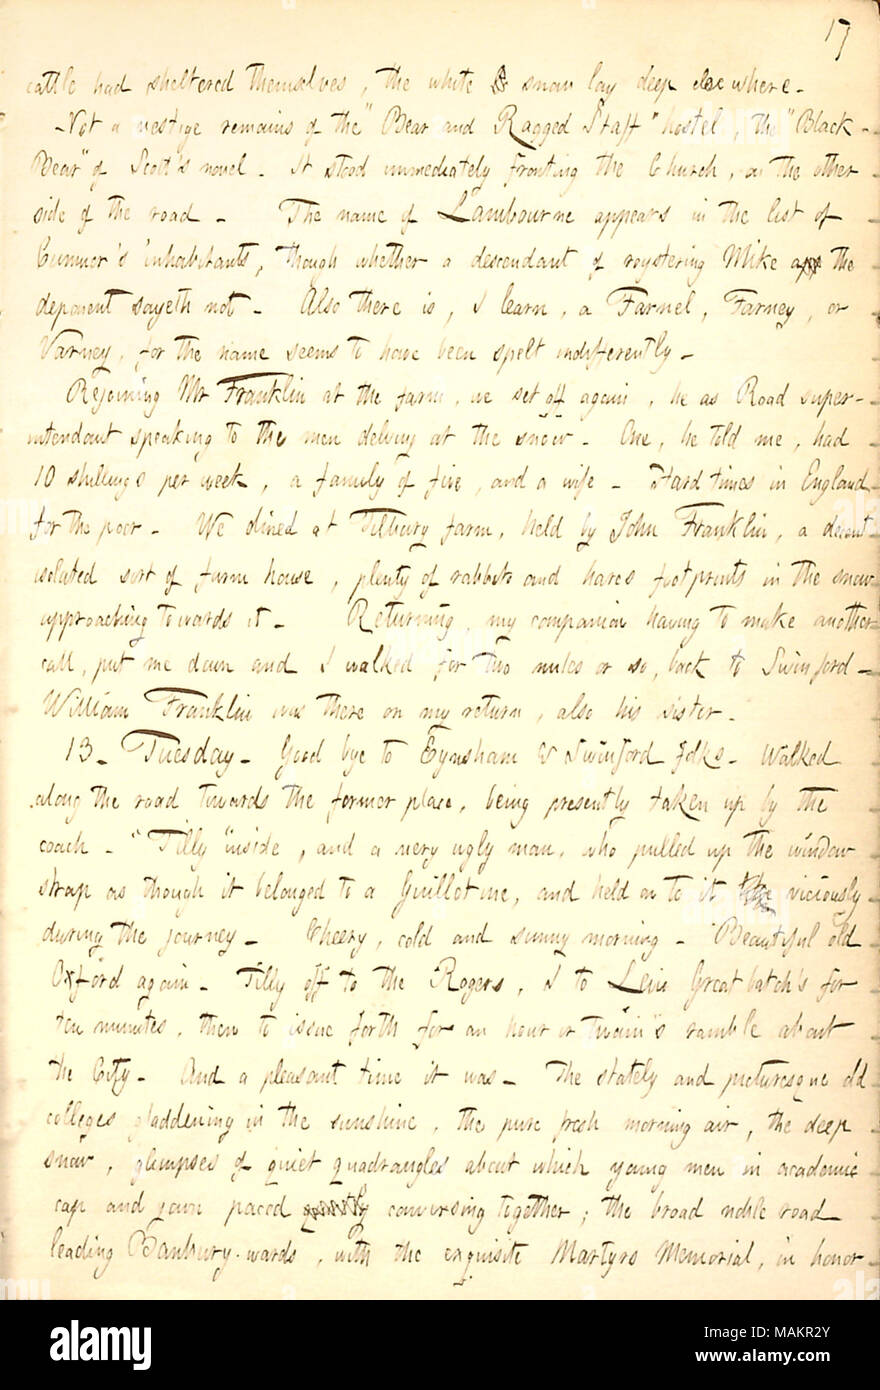 17
cattle had sheltered themselves, the white snow lay deep elsewhere.
Not a vestige remains of the "Bear and Ragged Staff" hostel, the "Black-
Bear" of Scott's novel. It stood immediately fronting the Church, on the other
side of the road. The name of Lambourne appears in the list of
Cumnor's inhabitants, though whether a descendant of roystering Mike the
deponent sayeth not. Also there is, I learn, a Farnel, Farney, or
Varney, for the name seems to have been spelt indifferently.
Rejoining Mr Franklin at the farm, we set off again, he as Road super-
intendant speaking to the men delving at the snow. One, he told me, had
10 shillings per week, a family of five, and a wife. Hard times in England
for the poor. We dined at Tilbury farm, held by John Franklin, a decent
isolated sort of farm house, plenty of rabbits and hares footprints in the snow
approaching towards it. Returning, my companion having to make another
call, put me down and I walked for two miles or so, back to Swinford.
William Franklin was there on my return, also his sister.
13. Tuesday. Good bye to Eynsham & Swinford folks. Walked
along the road towards the former place, being presently taken up by the
coach. "Tilly" inside, and a very ugly man, who pulled up the window
strap as though it belonged to a Guillotine, and held on to it viciously
during the journey. Cheery, cold and sunny morning. Beautiful old
Oxford again. Tilly off to the Rogers, I to Levi Greatbatch's for
ten minutes, then to issue forth for an hour or twain's ramble about
the City. And a pleasant time it was. The stately and picturesque old
colleges gladdening in the sunshine, the pure fresh morning air, the deep
snow, glimpses of quiet quadrangles about which young men in academic
cap and gown paced conversing together; the broad noble road
leading Banbury-wards, with the exquisite Martyrs Memorial, in honor
alamy
Image ID: MAKR2Y
www.alamy.com